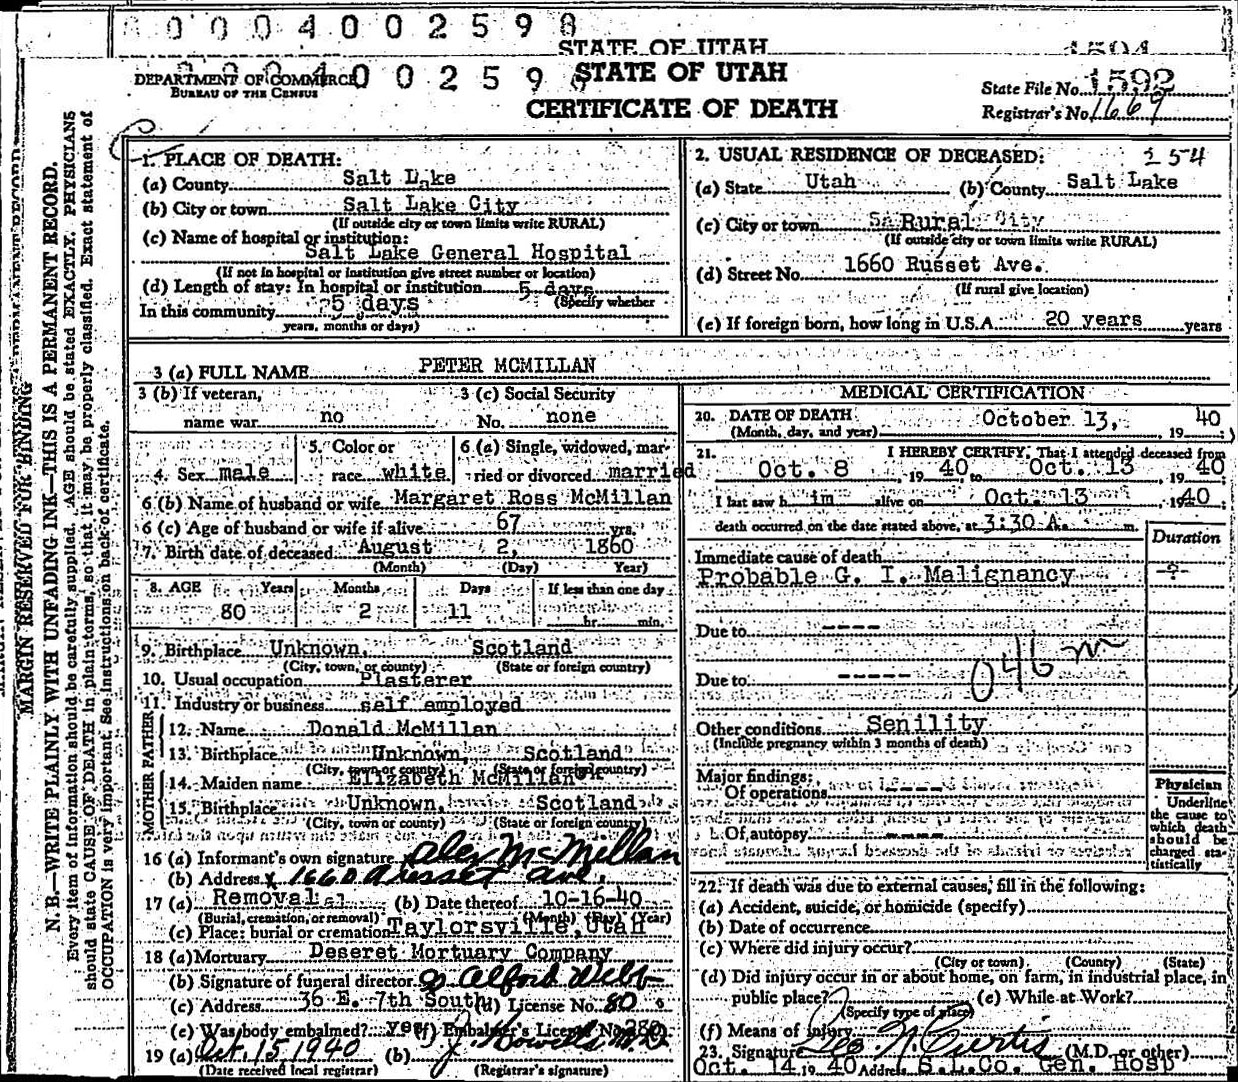 0004002598
STATE OF UTAH
DEPARTMENT OF COMMERCE
BUREAU OF THE CENSUS
STATE OF UTAH
CERTIFICATE OF DEATH
State File No. 1592
Registrar's No. 1669
MARGIN RESERVED FOR BINDING
N. B.—WRITE PLAINLY WITH UNFADING INK—THIS IS A PERMANENT RECORD.
Every item of information should be carefully supplied. AGE should be stated EXACTLY. PHYSICIANS
should state CAUSE OF DEATH in plain terms, so that it may be properly classified. Exact statement of
OCCUPATION is very important. See instructions on back of certificate.
1. PLACE OF DEATH:
(a) County Salt Lake
(b) City or town Salt Lake City
(If outside city or town limits write RURAL)
(c) Name of hospital or institution:
Salt Lake General Hospital
(If not in hospital or institution give street number or location)
(d) Length of stay: In hospital or institution 5 days
(Specify whether
In this community 5 days
years, months or days)
2. USUAL RESIDENCE OF DECEASED: 254
(a) State Utah (b) County Salt Lake
(c) City or town Rural City
(If outside city or town limits write RURAL)
(d) Street No. 1660 Russet Ave.
(If rural give location)
(e) If foreign born, how long in U.S.A. 20 years years
3 (a) FULL NAME PETER MCMILLAN
3 (b) If veteran,
name war no
3 (c) Social Security
No. none
4. Sex male
5. Color or
race white
6 (a) Single, widowed, mar-
ried or divorced married
6 (b) Name of husband or wife Margaret Ross McMillan
6 (c) Age of husband or wife if alive 67 yrs.
7. Birth date of deceased August 2, 1860
(Month) (Day) Year)
8. AGE Years Months Days If less than one day
80 2 11 hr. min.
9. Birthplace Unknown, Scotland
(City, town, or county) (State or foreign country)
10. Usual occupation Plasterer
11. Industry or business self employed
FATHER
12. Name Donald McMillan
13. Birthplace Unknown, Scotland
(City, town or county) (State or foreign country)
MOTHER
14. Maiden name Elizabeth McMillan
15. Birthplace Unknown, Scotland
(City, town or county) (State or foreign country)
16 (a) Informant's own signature Alex McMillan
(b) Address x 1660 Russet Ave.
17 (a) Removal (b) Date thereof 10-16-40
(Burial, cremation, or removal) (Month) (Day) (Year)
(c) Place: burial or cremation Taylorsville, Utah
18 (a) Mortuary Deseret Mortuary Company
(b) Signature of funeral director Alford Webb
(c) Address 36 E. 7th South (d) License No. 80
(e) Was body embalmed? yes (f) Embalmer's License No. 280
19 (a) Oct. 15, 1940 (b) J. Howells M.D.
(Date received local registrar) (Registrar's signature)
MEDICAL CERTIFICATION
20. DATE OF DEATH October 13, 1940
(Month, day, and year)
21. I HEREBY CERTIFY, That I attended deceased from
Oct. 8, 1940, to Oct. 13, 1940
I last saw him alive on Oct. 13, 1940
death occurred on the date stated above, at 3:30 A. m.
Duration
Immediate cause of death
Probable G. I. Malignancy -?-
Due to ----
Due to -----
046 m
Other conditions Senility
(Include pregnancy within 3 months of death)
Major findings:
Of operations ----
Of autopsy ----
Physician
Underline
the cause to
which death
should be
charged sta-
tistically
22. If death was due to external causes, fill in the following:
(a) Accident, suicide, or homicide (specify)
(b) Date of occurrence
(c) Where did injury occur?
(City or town) (County) (State)
(d) Did injury occur in or about home, on farm, in industrial place, in
public place? (e) While at Work?
(Specify type of place)
(f) Means of injury
23. Signature Geo. N. Curtis (M.D. or other)
Oct. 14, 1940 Address S.L.Co. Gen. Hosp